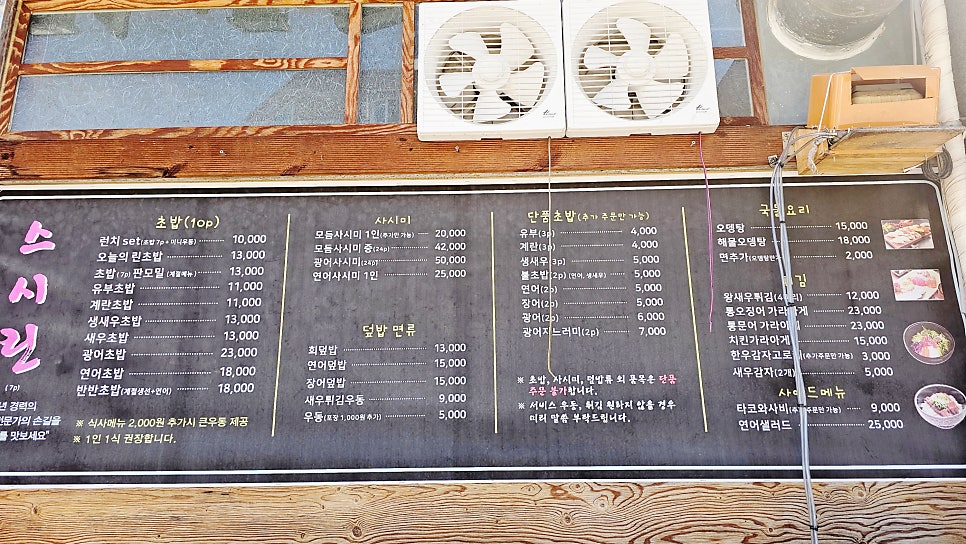 스
시
린
(7p)
년 경력의
전문가의 손길을
를 맛보세요"
초밥(10p)
런치 set(초밥 7p + 미니우동) 10,000
오늘의 린초밥 13,000
초밥(7p) 판모밀(계절메뉴) 13,000
유부초밥 11,000
계란초밥 11,000
생새우초밥 13,000
새우초밥 13,000
광어초밥 23,000
연어초밥 18,000
반반초밥(계절생선+연어) 18,000
※ 식사메뉴 2,000원 추가시 큰우동 제공
※ 1인 1식 권장합니다.
사시미
모듬사시미 1인(추가만 가능) 20,000
모듬사시미 중(24p) 42,000
광어사시미(24p) 50,000
연어사시미 1인 25,000
덮밥 면류
회덮밥 13,000
연어덮밥 15,000
장어덮밥 15,000
새우튀김우동 9,000
우동(포장 1,000원 추가) 5,000
단품초밥(추가 주문만 가능)
유부(3p) 4,000
계란(3p) 4,000
생새우(3p) 5,000
불초밥(2p)(연어, 생새우) 5,000
연어(2p) 5,000
장어(2p) 5,000
광어(2p) 6,000
광어지느러미(2p) 7,000
※ 초밥, 사시미, 덮밥류 외 품목은 단품
주문 불가합니다.
※ 서비스 우동, 튀김 원하지 않을 경우
미리 말씀 부탁드립니다.
국물요리
오뎅탕 15,000
해물오뎅탕 18,000
면추가 2,000
김
왕새우튀김 12,000
통오징어 가라아게 23,000
통문어 가라아게 23,000
치킨가라아게 15,000
한우감자고로케(추가주문만 가능) 3,000
새우감자(2개) 5,000
사이드메뉴
타코와사비(추가주문만 가능) 9,000
연어샐러드 25,000